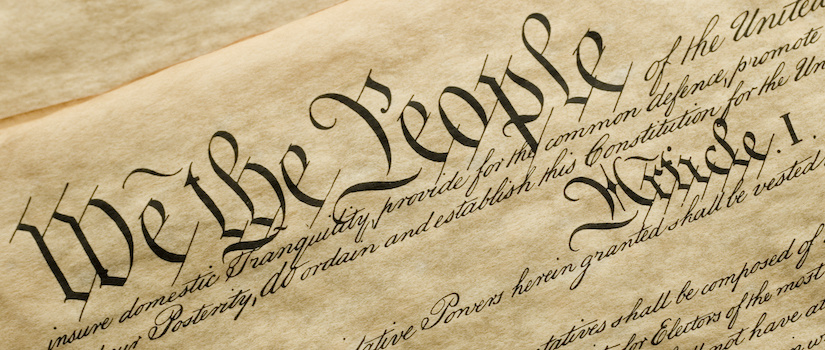 We the People of the United
insure domestic Tranquility, provide for the common defence, promote
our Posterity, do ordain and establish this Constitution for the Un
Article. I.
lative Powers herein granted shall be vested
tatives shall be composed of
for Electors of the most
not have